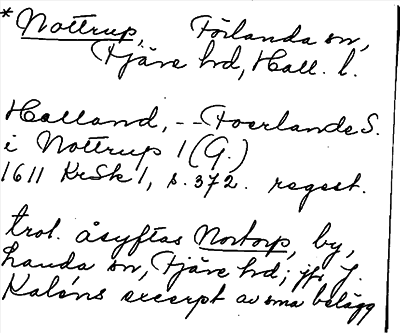 * Nottrup, Förlanda sn,
Fjäre hd, Hall. l.
Halland, -- Foerlande S.
i Nottrup 1 (G.)
1611 KrSk 1, s. 372. regest.
trol. åsyftas Nortorp, by,
Landa sn, Fjäre hd; jfr J.
Kaléns excerpt av sma belägg